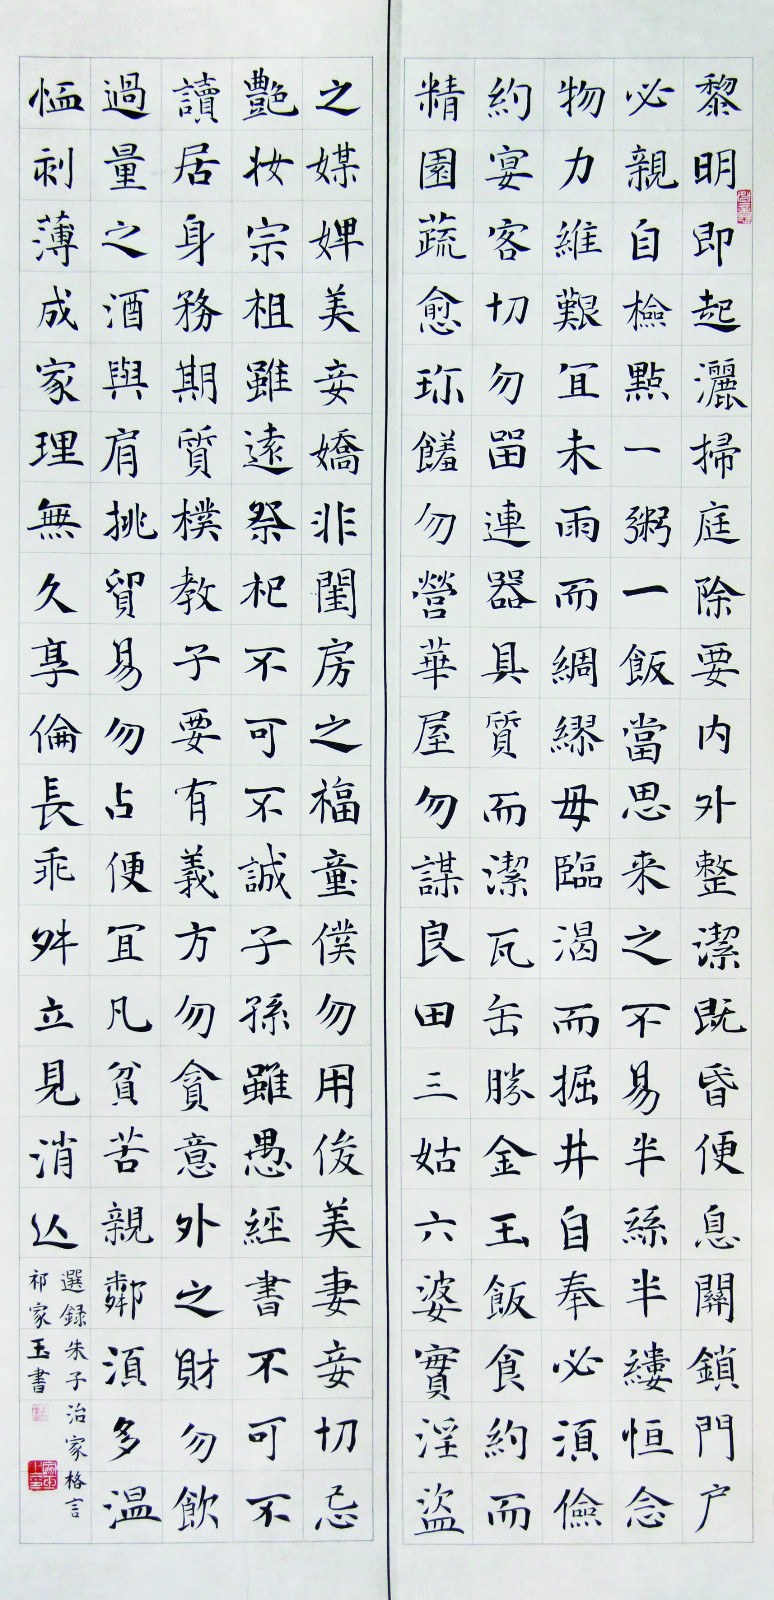 黎明即起灑掃庭除要内外整潔既昏便息關鎖門户
必親自檢點一粥一飯當思来之不易半絲半縷恒念
物力維艱宜未雨而綢繆毋臨渴而掘井自奉必須儉
約宴客切勿畱連器具質而潔瓦缶勝金玉飯食約而
精園蔬愈珎饈勿營華屋勿謀良田三姑六婆實淫盜
之媒婢美妾嬌非閨房之福童僕勿用俊美妻妾切忌
艷妝宗祖雖遠祭祀不可不誠子孫雖愚經書不可不
讀居身務期質樸教子要有義方勿貪意外之財勿飲
過量之酒與肩挑貿易勿占便宜凡貧苦親鄰須多温
恤剥薄成家理無久享倫長乖舛立見消亾
選録朱子治家格言
祁家玉書